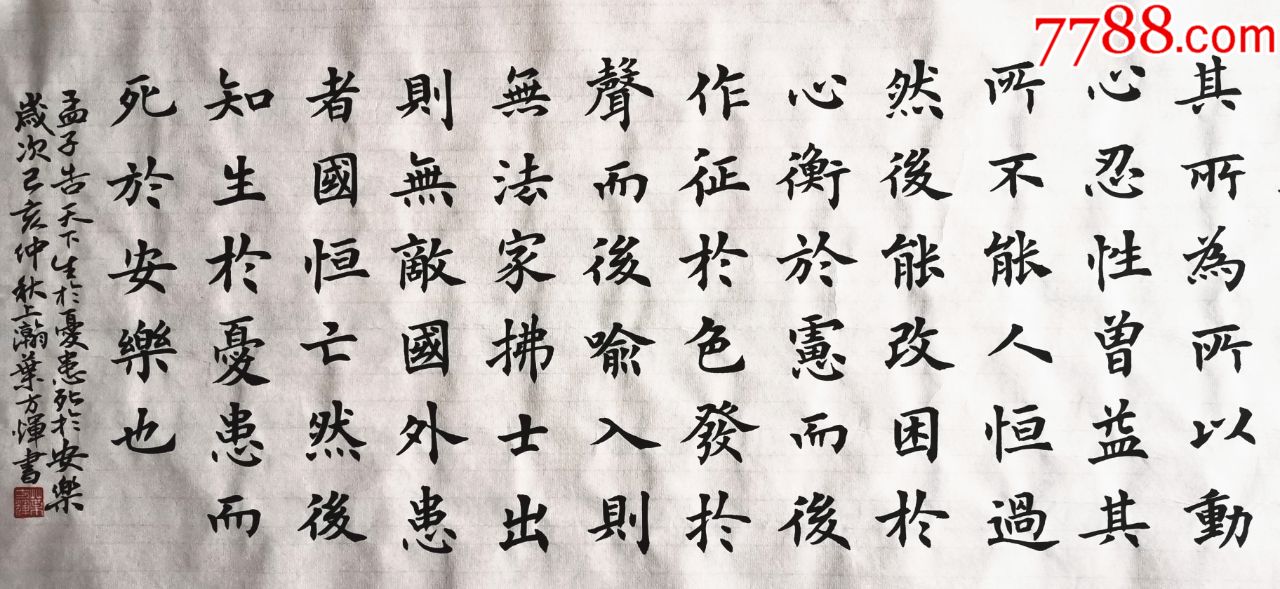 7788.com
其所為所以動
心忍性曾益其
所不能人恒過
然後能改困於
心衡於慮而後
作征於色發於
聲而後喻入則
無法家拂士出
則無敵國外患
者國恒亡然後
知生於憂患而
死於安樂也
孟子告天下生於憂患死於安樂
歲次己亥仲秋上瀚葉方煇書